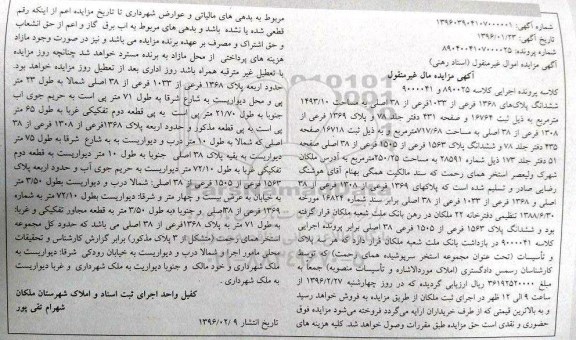 شماره آگهی: ۱۳۹۶۰۳۹۰۴۱۰۷۰۰۰۰۰۱
تاریخ آگهی: ۱۳۹۶/۰۱/۲۳
شماره پرونده: ۸۹۰۴۰۰۴۱۰۷۰۰۰۰۲۵
آگهی مزایده اموال غیرمنقول (اسناد رهنی)
آگهی مزایده مال غیرمنقول
کلاسه پرونده اجرایی کلاسه ۸۹۰۰۲۵ و ۹۰۰۰۰۴۱
ششدانگ پلاک‌های ۱۳۶۸ فرعی از ۱۰۳۳فرعی از ۳۸ اصلی به مساحت ۱۴۹۳/۱۰
مترمربع به ذیل ثبت ۱۶۷۶۴ و صفحه ۴۳۱ دفتر جلد ۷۸ و پلاک ۱۳۶۹ فرعی از
۱۳۰۸ فرعی از ۳۸ اصلی به مساحت ۷۱۷/۶۸مترمربع و به ذیل ثبت ۱۶۷۱۸ صفحه
۴۳۵ دفتر جلد ۷۸ و ششدانگ پلاک ۱۵۶۳ فرعی از ۱۵۰۵ فرعی از ۳۸ اصلی صفحه
۵۱ دفتر جلد ۱۷۳ ذیل شماره ۲۸۵۹۱ به مساحت ۲۵۰/۲۵مترمربع به آدرس ملکان
شهرک ولیعصر استخر همای رحمت که سند مالکیت همگی بهنام آقای هوشنگ
رضایی صادر و تسلیم شده است که پلاکهای ۱۳۶۹ فرعی از ۱۳۰۸ فرعی از ۳۸
اصلی و ۱۳۶۸ فرعی از ۱۰۳۳ فرعی از ۳۸ اصلی برابر سند شماره ۱۶۸۲۴ مورخه
۱۳۸۸/۶/۳۰ تنظیمی دفترخانه ۲۲ ملکان در رهن بانک ملت شعبه ملکان قرار گرفته
بود و ششدانگ پلاک ۱۵۶۳ فرعی از ۱۵۰۵ فرعی از ۳۸ اصلی برابر پرونده اجرایی
کلاسه ۹۰۰۰۰۴۱ در بازداشت بانک ملت شعبه ملکان قرار دارد که هر سه پلاک
و تأسیسات (تحت عنوان مجموعه استخر سرپوشیده همای رحمت) که توسط
کارشناسان رسمی دادگستری (املاک موردالاشاره و تأسیسات منصوبه) جمعاً به
مبلغ ۳۶۱۹۲۵۲۰۰۰۰ ریال ارزیابی گردیده که در روز چهارشنبه ۱۳۹۶/۲/۲۷ از
ساعت ۹ الی ۱۲ ظهر در اجرای ثبت ملکان از طریق مزایده به فروش خواهد رسید
و به بالاترین قیمتی که از طرف خریداران ارایه می‌گردد فروخته می‌شود مزایده فوق
حضوری و نقدی است حق مزایده طبق مقررات وصول خواهد شد. کلیه هزینه های
مربوط به بدهی های مالیاتی و عوارض شهرداری تا تاریخ مزایده اعم از اینکه رقم
قطعی شده یا نشده باشد و بدهی های مربوط به آب برق گاز و اعم از حق انشعاب
و حق اشتراک و مصرف بر عهده برنده مزایده می باشد و نیز در صورت وجود مازاد
هزینه های پرداختی از محل مازاد به برنده مسترد خواهد شد چنانچه روز مزایده
با تعطیل غیر مترقبه همراه باشد روز اداری بعد از تعطیل روز مزایده خواهد بود.
حدود اربعه پلاک ۱۳۶۸ فرعی از ۱۰۳۳ فرعی از ۳۸ اصلی شمالا به طول ۲۳ متر
پی و محل دیواریست به شارع شرقا به طول ۷۱ متر پی است به حریم جوی آب
جنوبا به طول ۲۱/۷۰ متر پی است به پی قطعه دوم تفکیکی غربا به طول ۶۵ متر
پی است به پی قطعه مذکور و حدود اربعه پلاک ۱۳۶۸فرعی از ۱۳۰۸ فرعی از ۳۸
اصلی که شمالا به طول ۱۰ متر درب و دیواریست به شارع شرقا به طول ۷۵ متر
دیواریست به بقیه پلاک ۳۸ اصلی جنوبا به طول ۱۰ متر دیواریست به قطعه دوم
تفکیکی غربا به طول ۷۲/۱۰ متر دیواریست به حریم جوی آب و حدود اربعه پلاک
۱۵۶۳ فرعی از ۱۵۰۵ فرعی از ۳۸ اصلی: شمالا درب و دیواریست بطول ۳/۵۰ متر
به خیابان به عرض بیست و چهار متر و شرقا: دیواریست بطول ۷۲/۱۰ متر به شماره
۱۳۶۹ فرعی از ۳۸اصلی و جنوبا: به طول ۳/۵۰ متر به قطعه مجاور تفکیکی و غربا:
به طول ۷۱ متر به پلاک ۱۳۶۸فرعی از ۳۸ اصلی می باشد که حدود کل مجموعه
استخر همای رحمت (متشکل از ۳ پلاک مذکور) برابر گزارش کارشناس و تحقیقات
محلی مامور اجرا: شمالا درب و دیواریست به خیابان رودکی شرقا: دیواریست به
ملک شهرداری و خود مالک و جنوبا دیواریت به ملک شهرداری و غربا دیواریست
به ملک شهرداری.
کفیل واحد اجرای ثبت اسناد و املاک شهرستان ملکان
شهرام تقی پور
تاریخ انتشار ۹/ ۱۳۹۶/۰۲